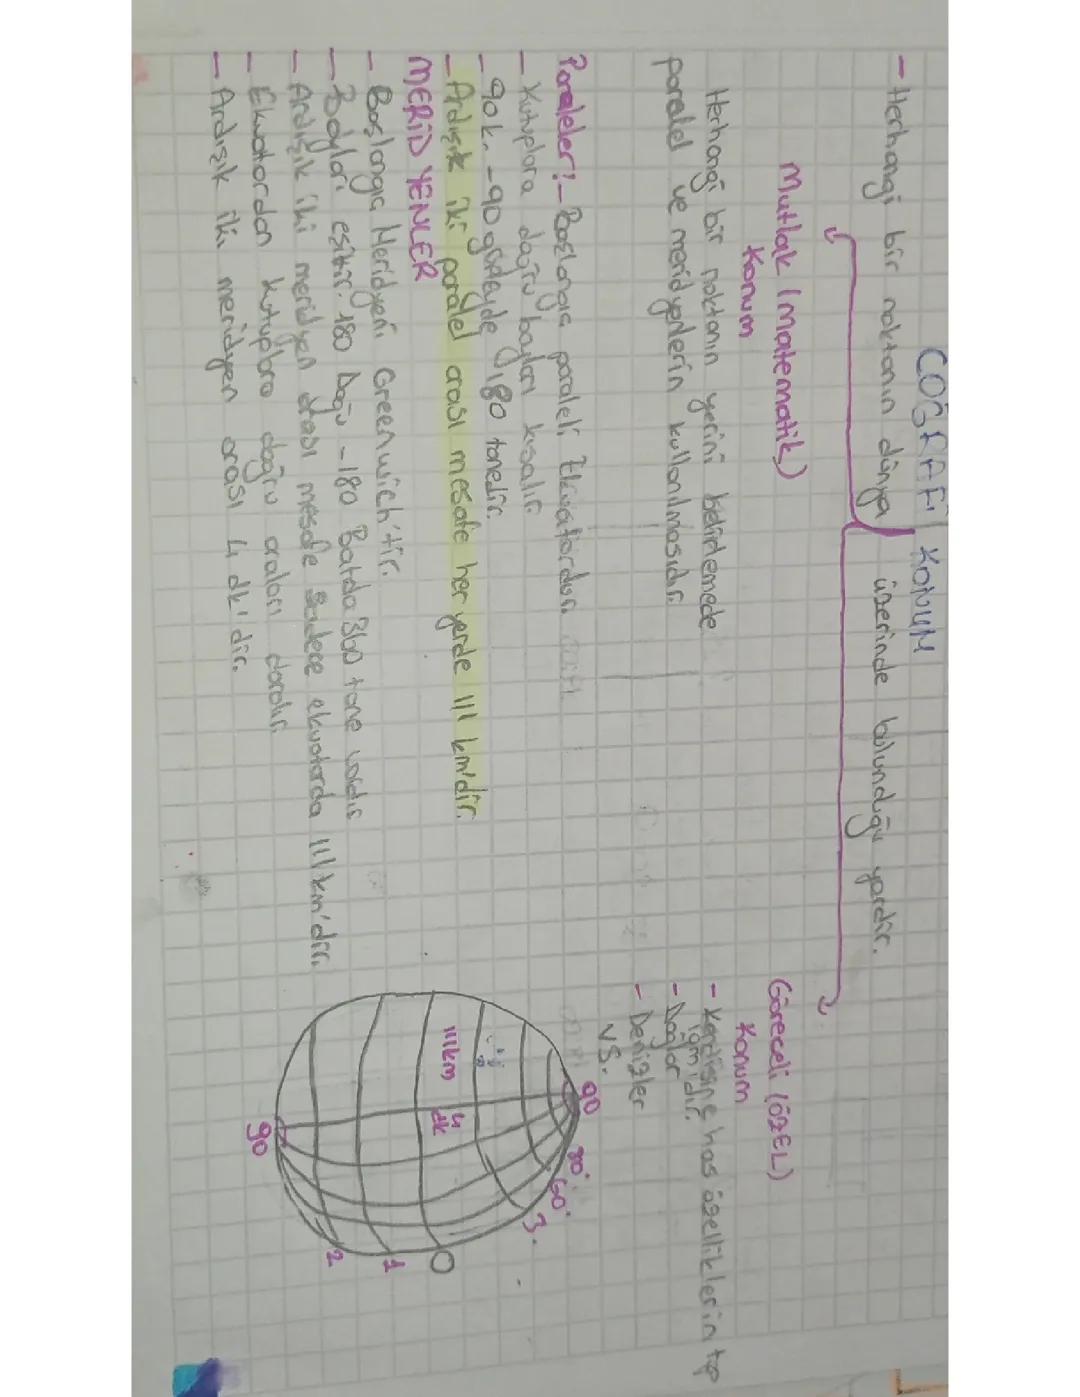 COĞRAFİ KONUM
- Herhangi bir noktanın dünya üzerinde bulunduğu yerdir.
Mutlak (Matematik)
Konum
Herhangi bir noktanın yerini belirlemede
paralel ve meridyenlerin kullanılmasıdır.
Göreceli (ÖZEL)
Konum
- Kendisine has özelliklerin top
- Dağlar
- Denizler
vs.
Paraleler:- Başlangıç paraleli Ekvatordur.
- Kutuplara doğru boyları kısalır.
- 90 k. - 90 güneyde 180 tanedir.
- Ardışık iki paralel arası mesafe her yerde 111 km'dir.
MERİDYENLER
- Başlangıç Meridyeni Greenwich'tir.
- Boyları eşittir. 180 Doğu - 180 Batıda 360 tane vardır
- Ardışık iki meridyen arası mesafe sadece ekvatorda 111 km'dir.
- Ekvatordan kutuplara doğru araları daralır
- Ardışık iki meridyen arası 4 dk'dir.
90
80°
60°
3.
0
1
2
90
111km
4
dk